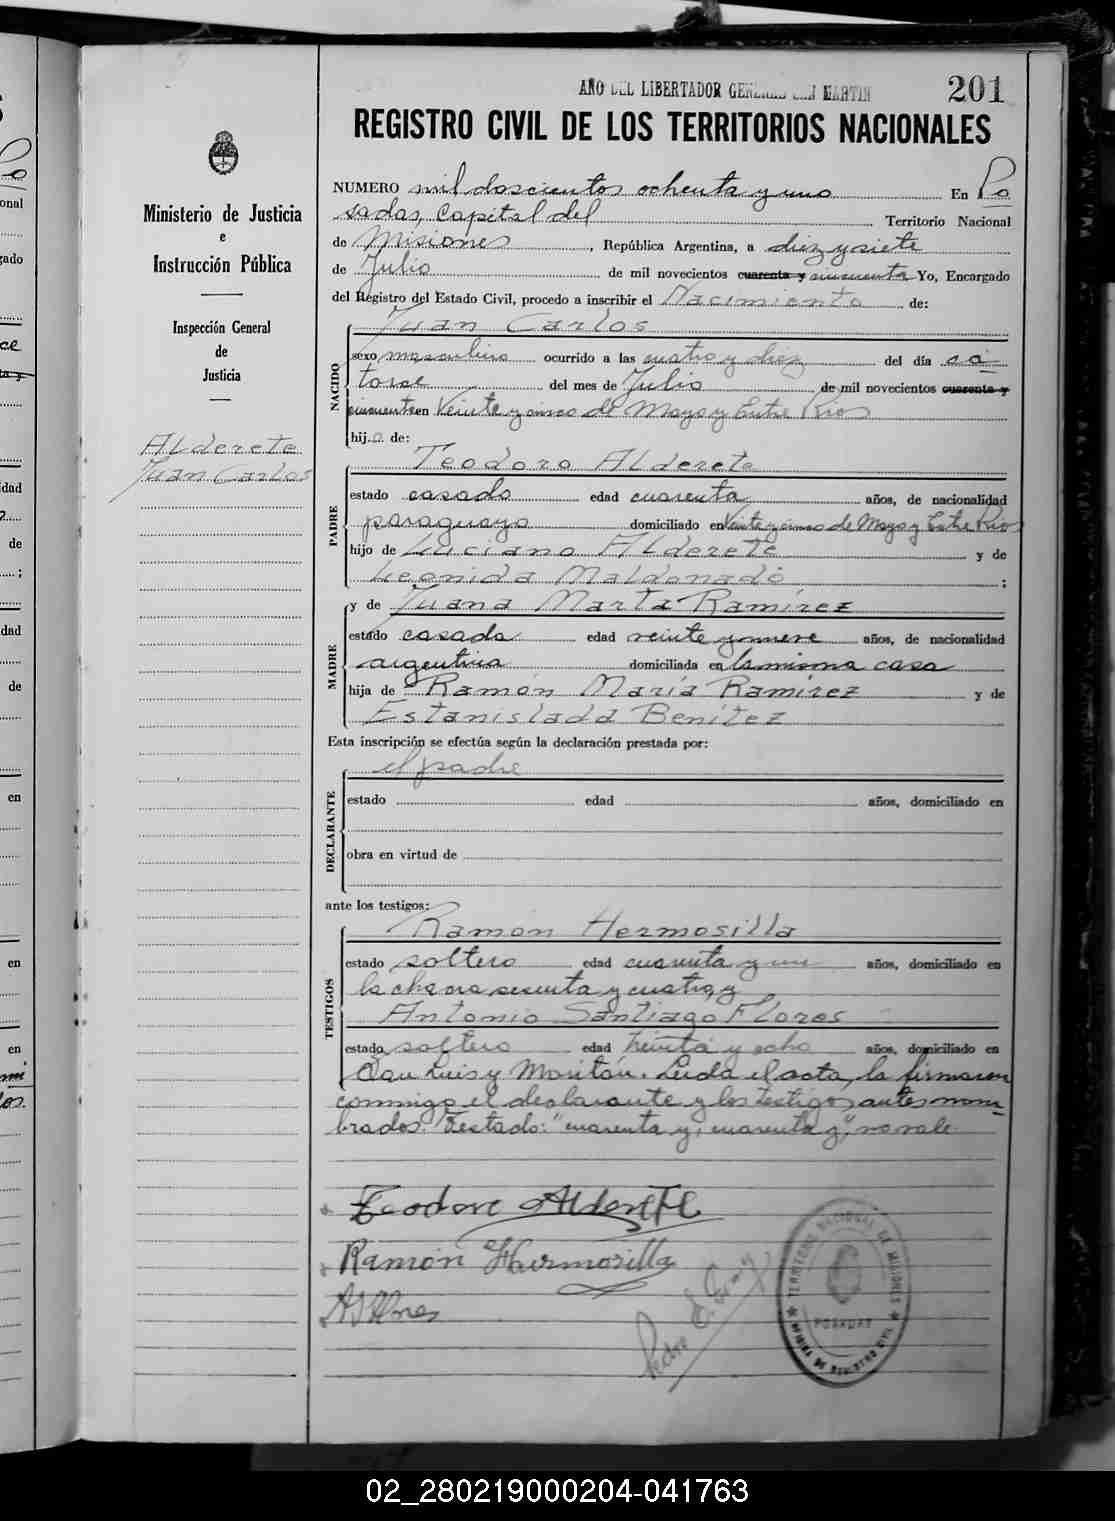 AÑO DEL LIBERTADOR GENERAL SAN MARTIN
201
REGISTRO CIVIL DE LOS TERRITORIOS NACIONALES
Ministerio de Justicia
e
Instrucción Pública
Inspección General
de
Justicia
Alderete
Juan Carlos
NUMERO mil doscientos ochenta y uno En Po
sadas, Capital del Territorio Nacional
de Misiones, República Argentina, a diez y siete
de Julio de mil novecientos cuarenta y cincuenta Yo, Encargado
del Registro del Estado Civil, procedo a inscribir el Nacimiento de:
NACIDO
Juan Carlos
sexo masculino ocurrido a las cuatro y diez del día ca-
torce del mes de Julio de mil novecientos cuarenta y
cincuenta en Veinte y cinco de Mayo y Entre Rios
hijo de:
PADRE
Teodoro Alderete
estado casado edad cuarenta años, de nacionalidad
paraguayo domiciliado en Veinte y cinco de Mayo y Entre Rios
hijo de Luciano Alderete y de
Leonida Maldonado ;
MADRE
y de Juana Marta Ramírez
estado casada edad veinte y nueve años, de nacionalidad
argentina domiciliada en la misma casa
hija de Ramón María Ramírez y de
Estanislada Benítez
Esta inscripción se efectúa según la declaración prestada por:
DECLARANTE
el padre
estado edad años, domiciliado en
obra en virtud de
ante los testigos:
TESTIGOS
Ramón Hermosilla
estado soltero edad cuarenta y un años, domiciliado en
la chacra sesenta y cuatro, y
Antonio Santiago Flores
estado soltero edad treinta y ocho años, domiciliado en
San Luis y Moritán. Leída el acta, la firmaron
conmigo el declarante y los testigos antes nom-
brados. Testado: "cuarenta y, cuarenta y", no vale.
Teodoro Alderete
Ramón Hermosilla
A S Flores
Pedro
TERRITORIO NACIONAL DE MISIONES
POSADAS
OFICINA DE REGISTRO CIVIL
02_280219000204-041763